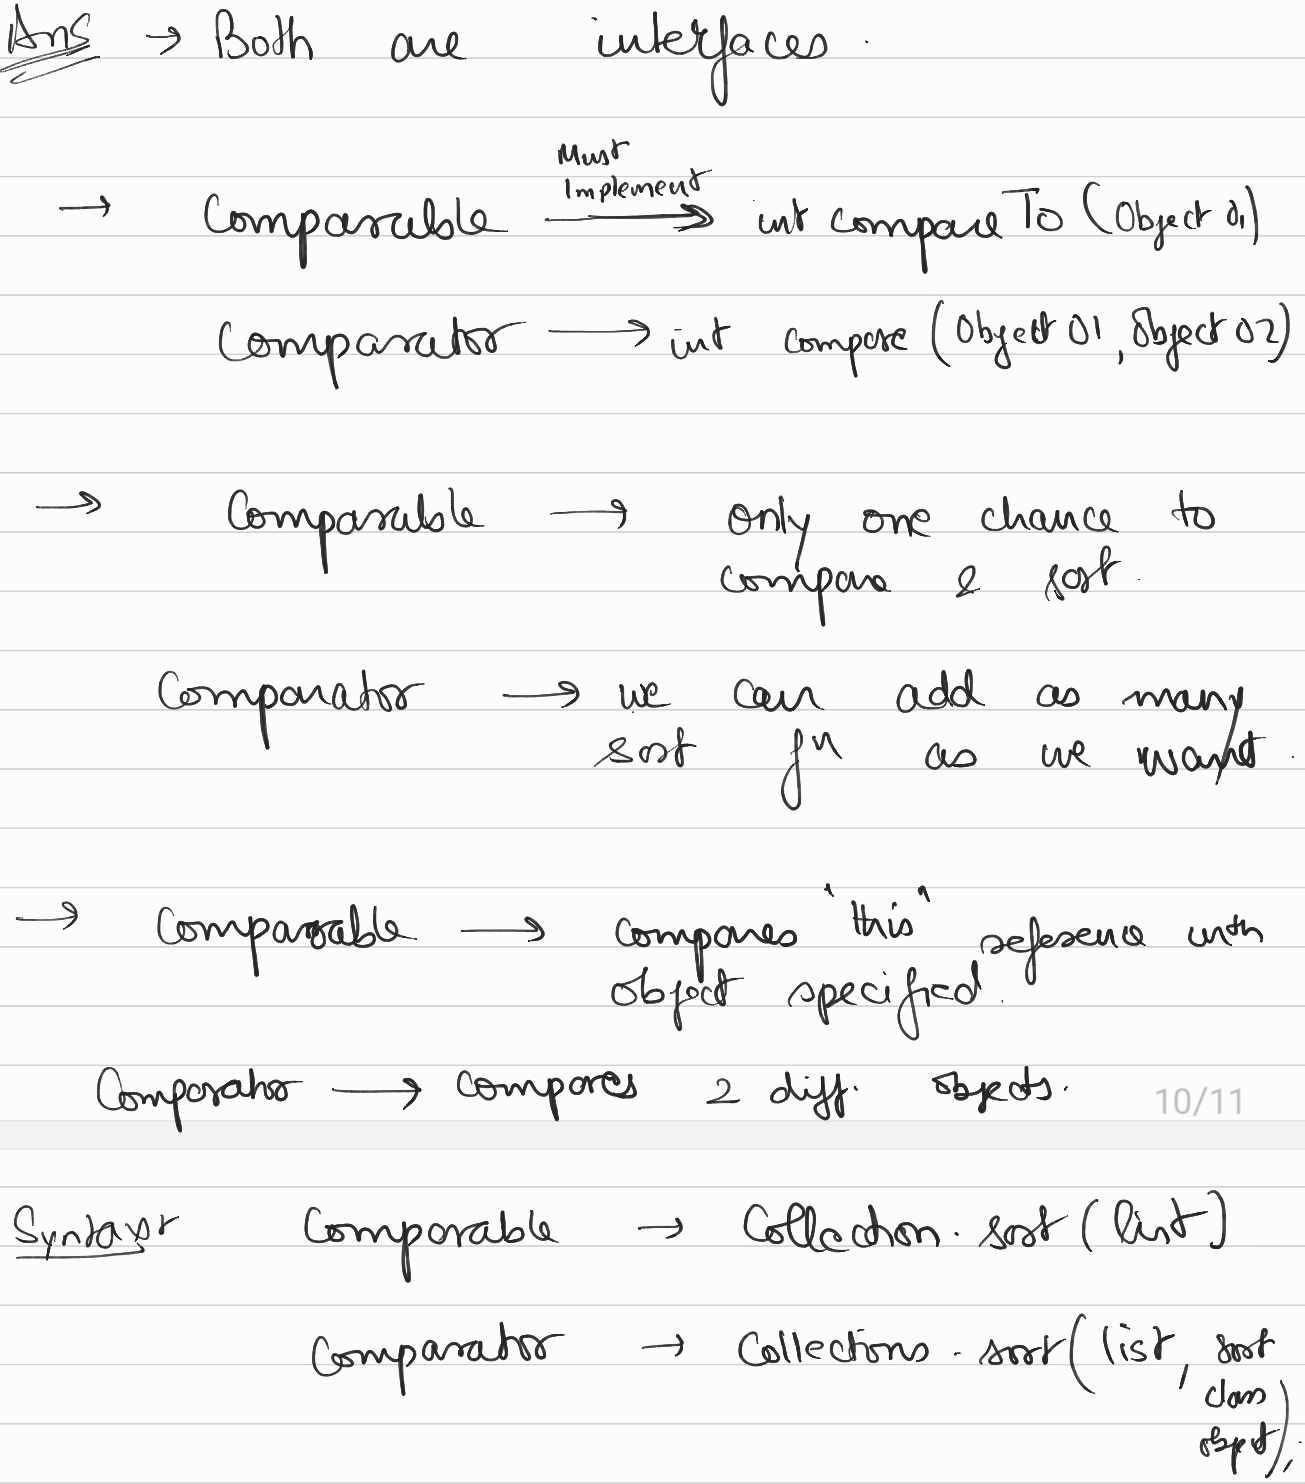 Ans → Both are interfaces.
Must
Implement
→ Comparable → int compareTo (Object O1)
Comparator → int compare (Object O1, Object O2)
→ Comparable → only one chance to
compare & sort.
Comparator → we can add as many
sort fn as we want.
→ Comparable → compares "this" reference with
object specified.
Comparator → compares 2 diff. objects.
10/11
Syntax Comparable → Collection.sort(list)
Comparator → Collections.sort(list, sort
class
object);